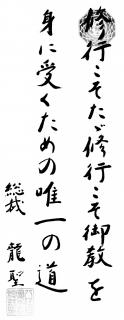 修行こそたゞ修行こそ御教を
身に受くための唯一の道
総裁 龍聖